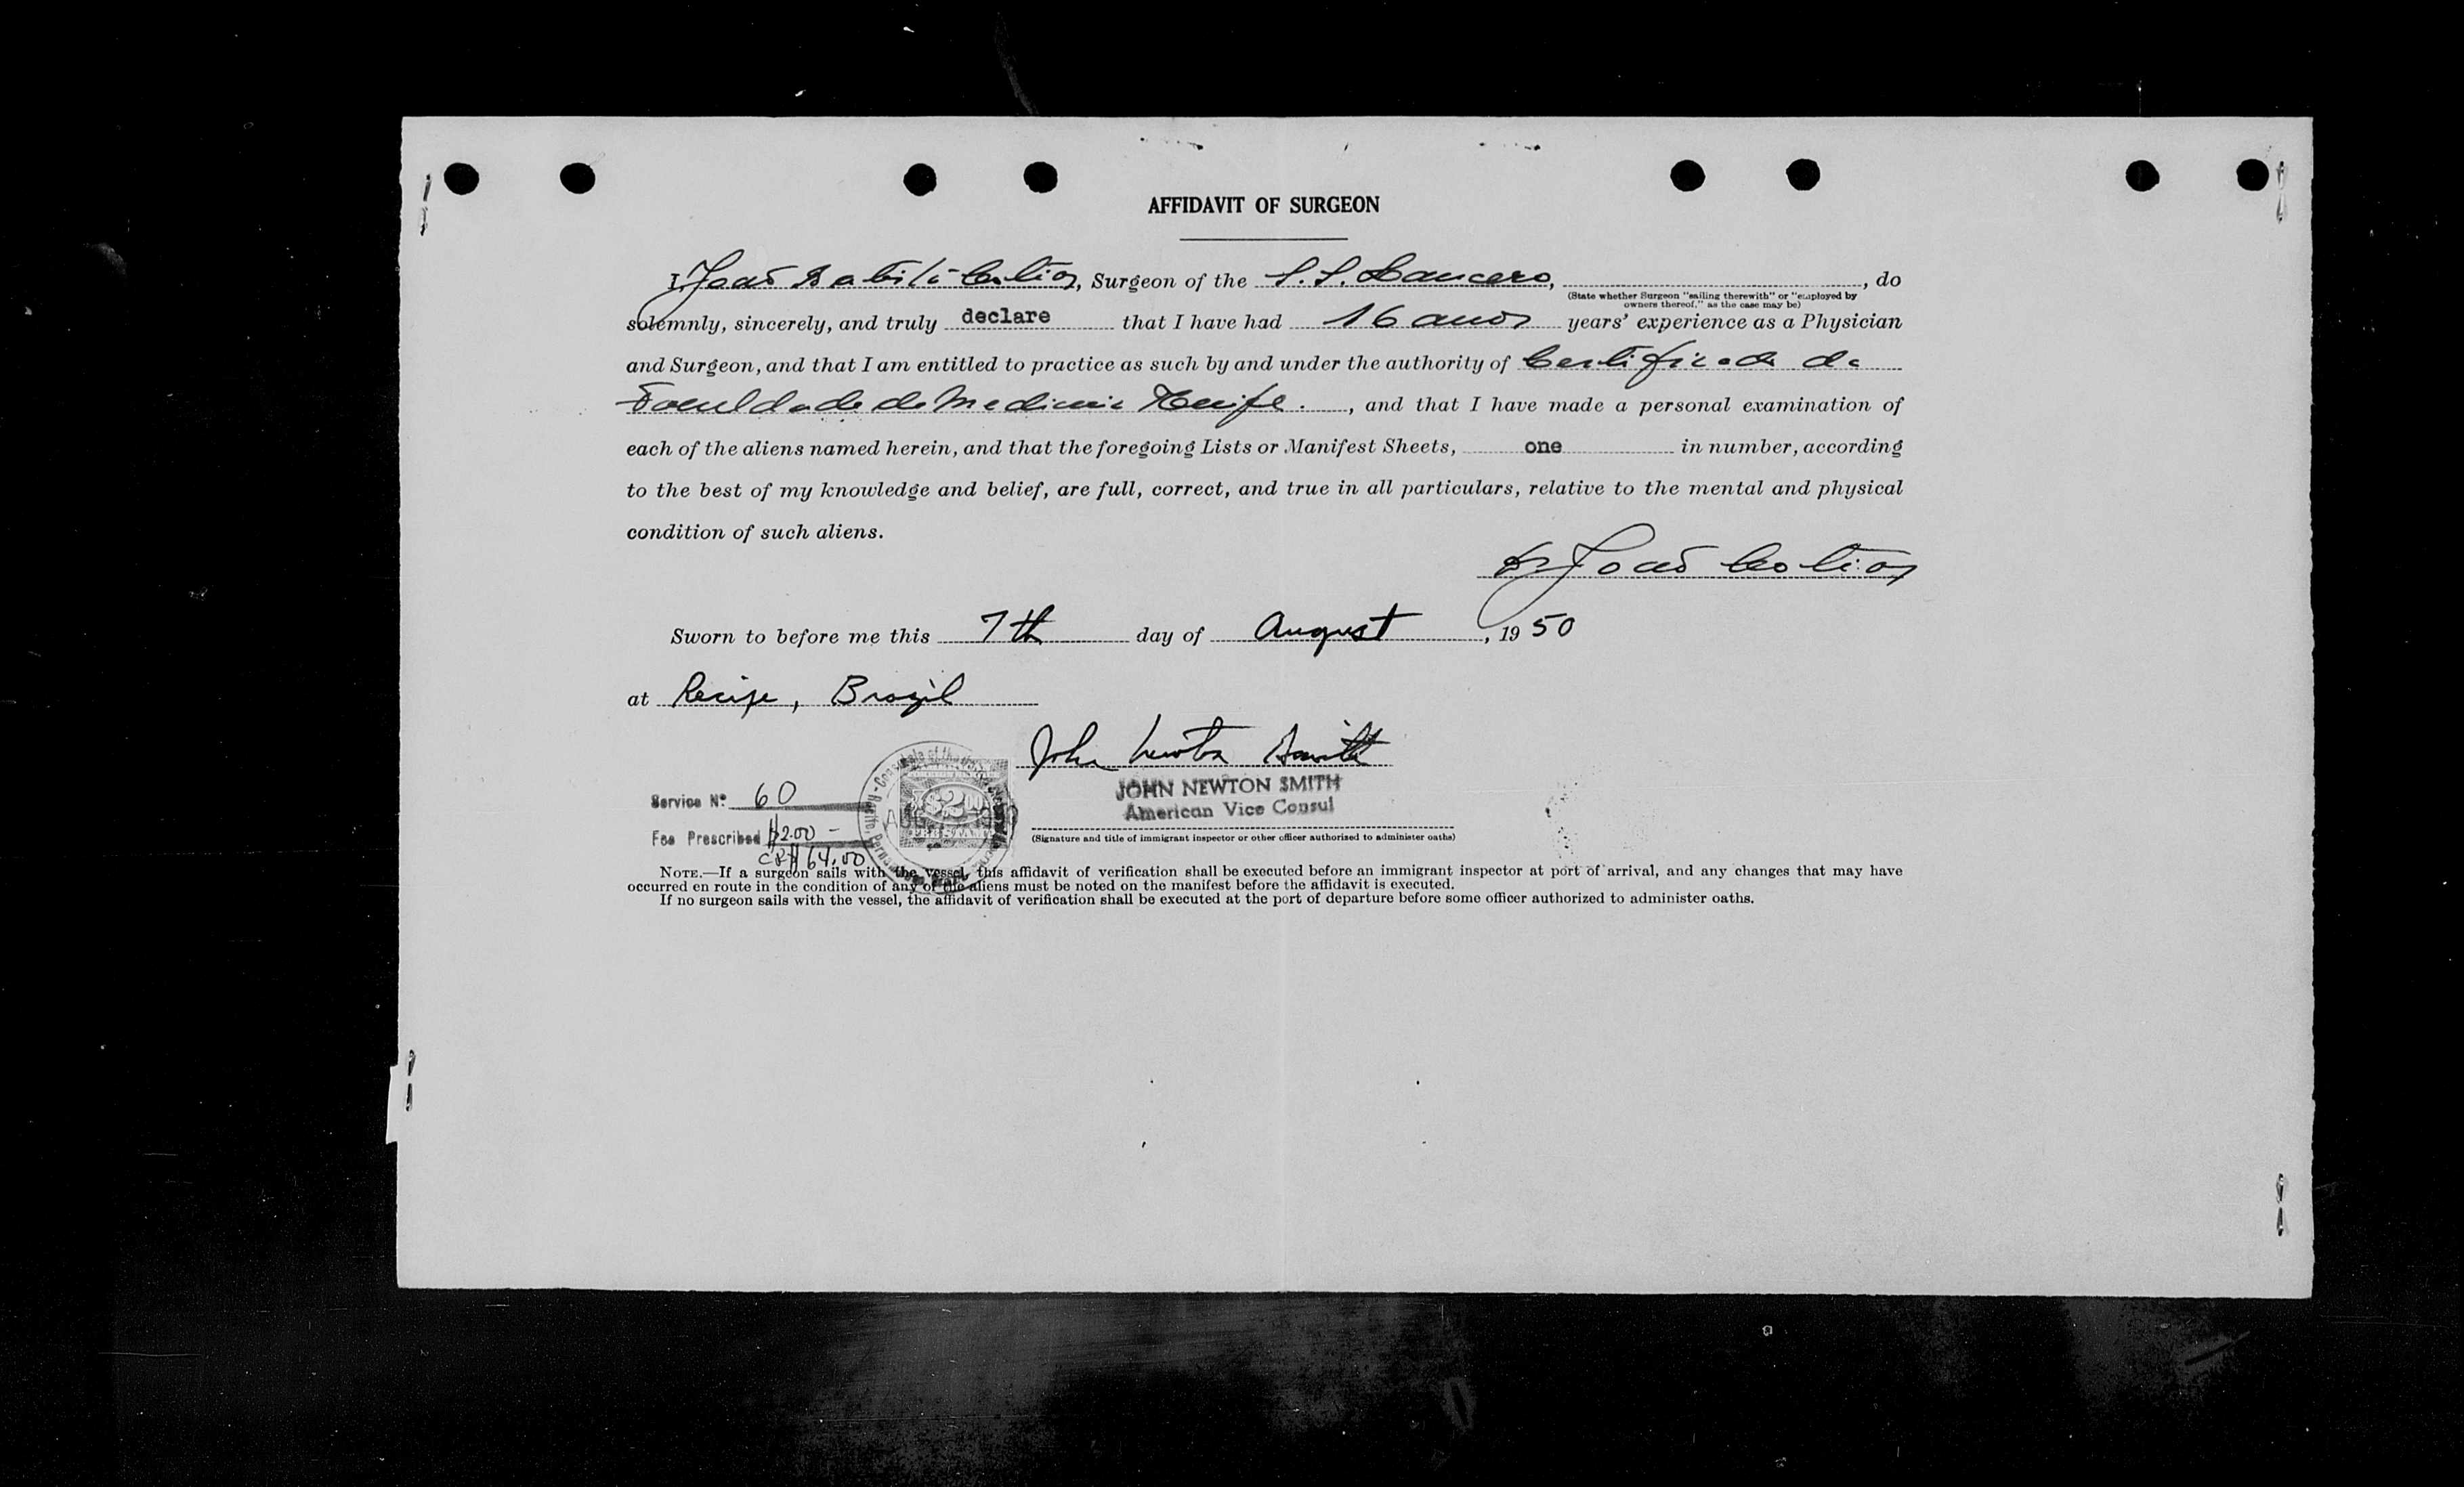 AFFIDAVIT OF SURGEON
I, João , Surgeon of the S.S. , , do
(State whether Surgeon "sailing therewith" or "employed by
owners thereof," as the case may be)
solemnly, sincerely, and truly declare that I have had 16 anos years' experience as a Physician
and Surgeon, and that I am entitled to practice as such by and under the authority of Certificado de
Faculdade de Medicina Recife. , and that I have made a personal examination of
each of the aliens named herein, and that the foregoing Lists or Manifest Sheets, one in number, according
to the best of my knowledge and belief, are full, correct, and true in all particulars, relative to the mental and physical
condition of such aliens.
Dr João
Sworn to before me this 7th day of August , 1950
at Recife, Brazil
John Newton Smith
JOHN NEWTON SMITH
American Vice Consul
(Signature and title of immigrant inspector or other officer authorized to administer oaths)
Service No. 60
Fee Prescribed $2.00 –
CR$ 64.00
$2.00
FEE STAMP
NOTE.—If a surgeon sails with the vessel, this affidavit of verification shall be executed before an immigrant inspector at port of arrival, and any changes that may have
occurred en route in the condition of any of the aliens must be noted on the manifest before the affidavit is executed.
If no surgeon sails with the vessel, the affidavit of verification shall be executed at the port of departure before some officer authorized to administer oaths.